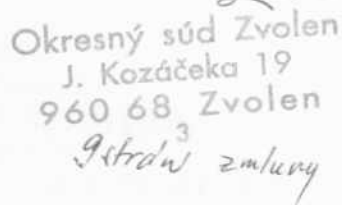 Okresný súd Zvolen
J. Kozáčeka 19
960 68 Zvolen
3
9 strán zmluvy